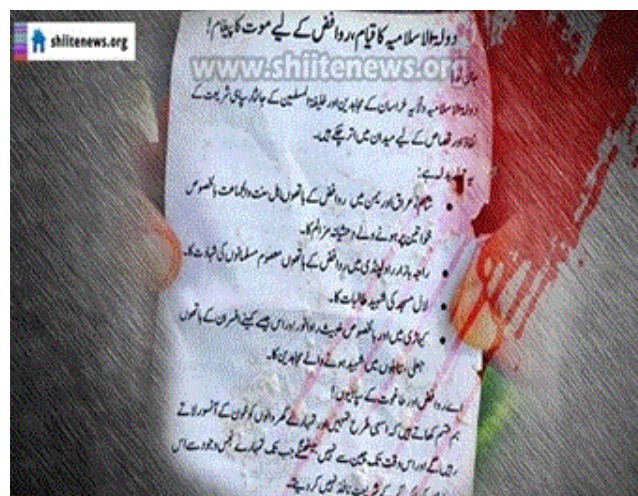 shiitenews.org
دولۃ الاسلامیہ کا قیام، روافض کے لیے موت کا پیغام!
www.shiitenews.org
دولۃ الاسلامیہ ولایہ خراسان کے مجاہدین اور خلیفۃ المسلمین کے جانثار سپاہی شریعت کے
نفاذ اور قصاص کے لیے میدان میں اتر چکے ہیں۔
یہ بدلہ ہے:
• شام، عراق اور یمن میں روافض کے ہاتھوں اہل سنت والجماعت بالخصوص
خواتین پر ہونے والے وحشیانہ مظالم کا۔
• راجہ بازار راولپنڈی میں روافض کے ہاتھوں معصوم مسلمانوں کی شہادت کا۔
• لال مسجد کی شہید طالبات کا۔
• کراچی میں اور بالخصوص خبیث راؤ انوار اور اس جیسے کمینے افسران کے ہاتھوں
جعلی مقابلوں میں شہید ہونے والے مجاہدین کا۔
اے روافض اور طاغوت کے سپاہیوں!
ہم قسم کھاتے ہیں کہ اسی طرح تمہیں اور تمہارے گھر والوں کو خون کے آنسو رلاتے
رہیں گے اور اس وقت تک چین سے نہیں بیٹھیں گے جب تک تمہارے نجس وجود سے اس
شریعت نافذ نہیں کر دیتے۔